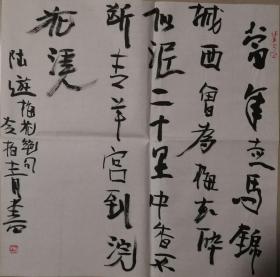 當年走馬錦
城西曾為梅花醉
似泥二十里中香不
斷青羊宮到浣
花溪
陸遊梅花絕句
柏青書